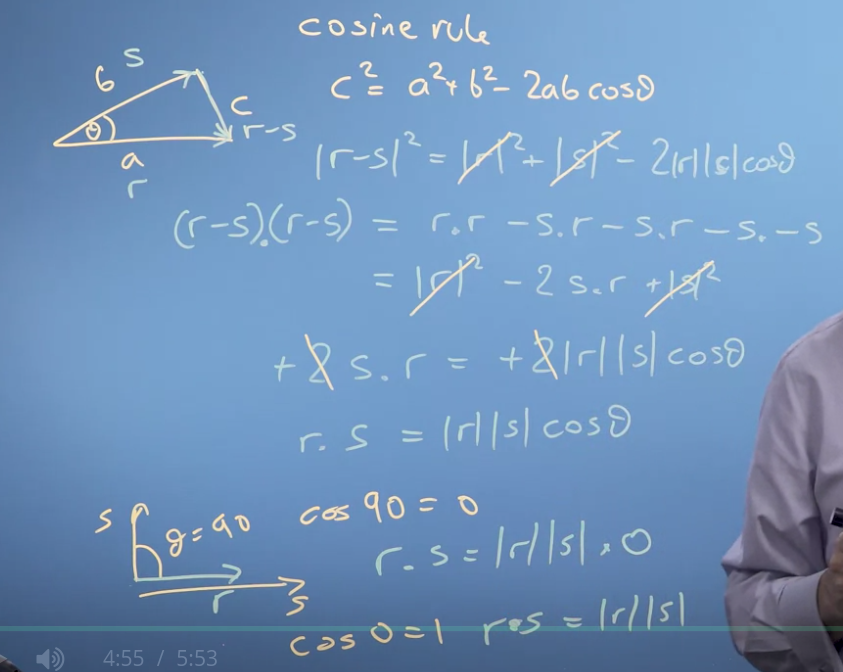 cosine rule
b s
c² = a² + b² - 2ab cosθ
θ c
r-s
a
r
|r-s|² = |r|² + |s|² - 2|r||s|cosθ
(r-s).(r-s) = r.r - s.r - s.r - s.-s
= |r|² - 2 s.r + |s|²
+2 s.r = +2|r||s|cosθ
r.s = |r||s|cosθ
s θ=90 cos 90 = 0
r.s = |r||s|.0
r s
cos 0 = 1 r.s = |r||s|
4:55 / 5:53